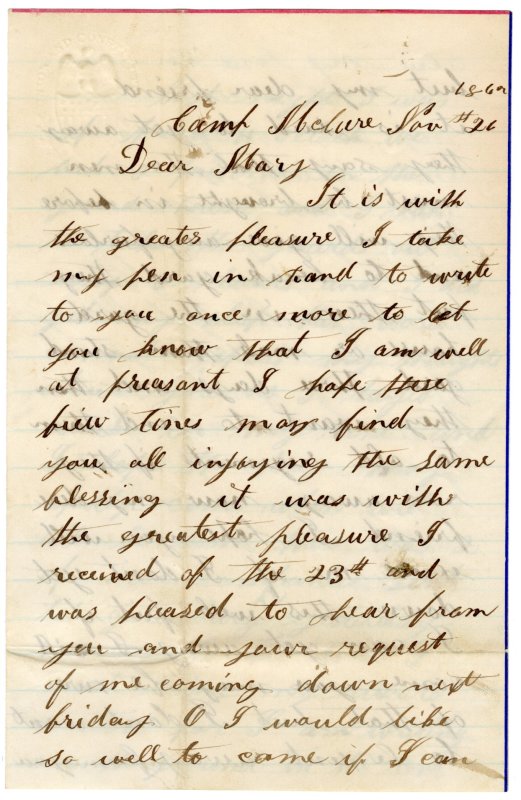 186
Camp McClure Nov #26
Dear Mary
It is with
the greates pleasure I take
my pen in hand to write
to you once more to let
you know that I am well
at preasant I hope these
few lines may find
you all injoying the same
blessing it was with
the greatest pleasure I
received of the 23th and
was pleased to hear from
you and your request
of me coming down next
friday O I would like
so well to come if I can